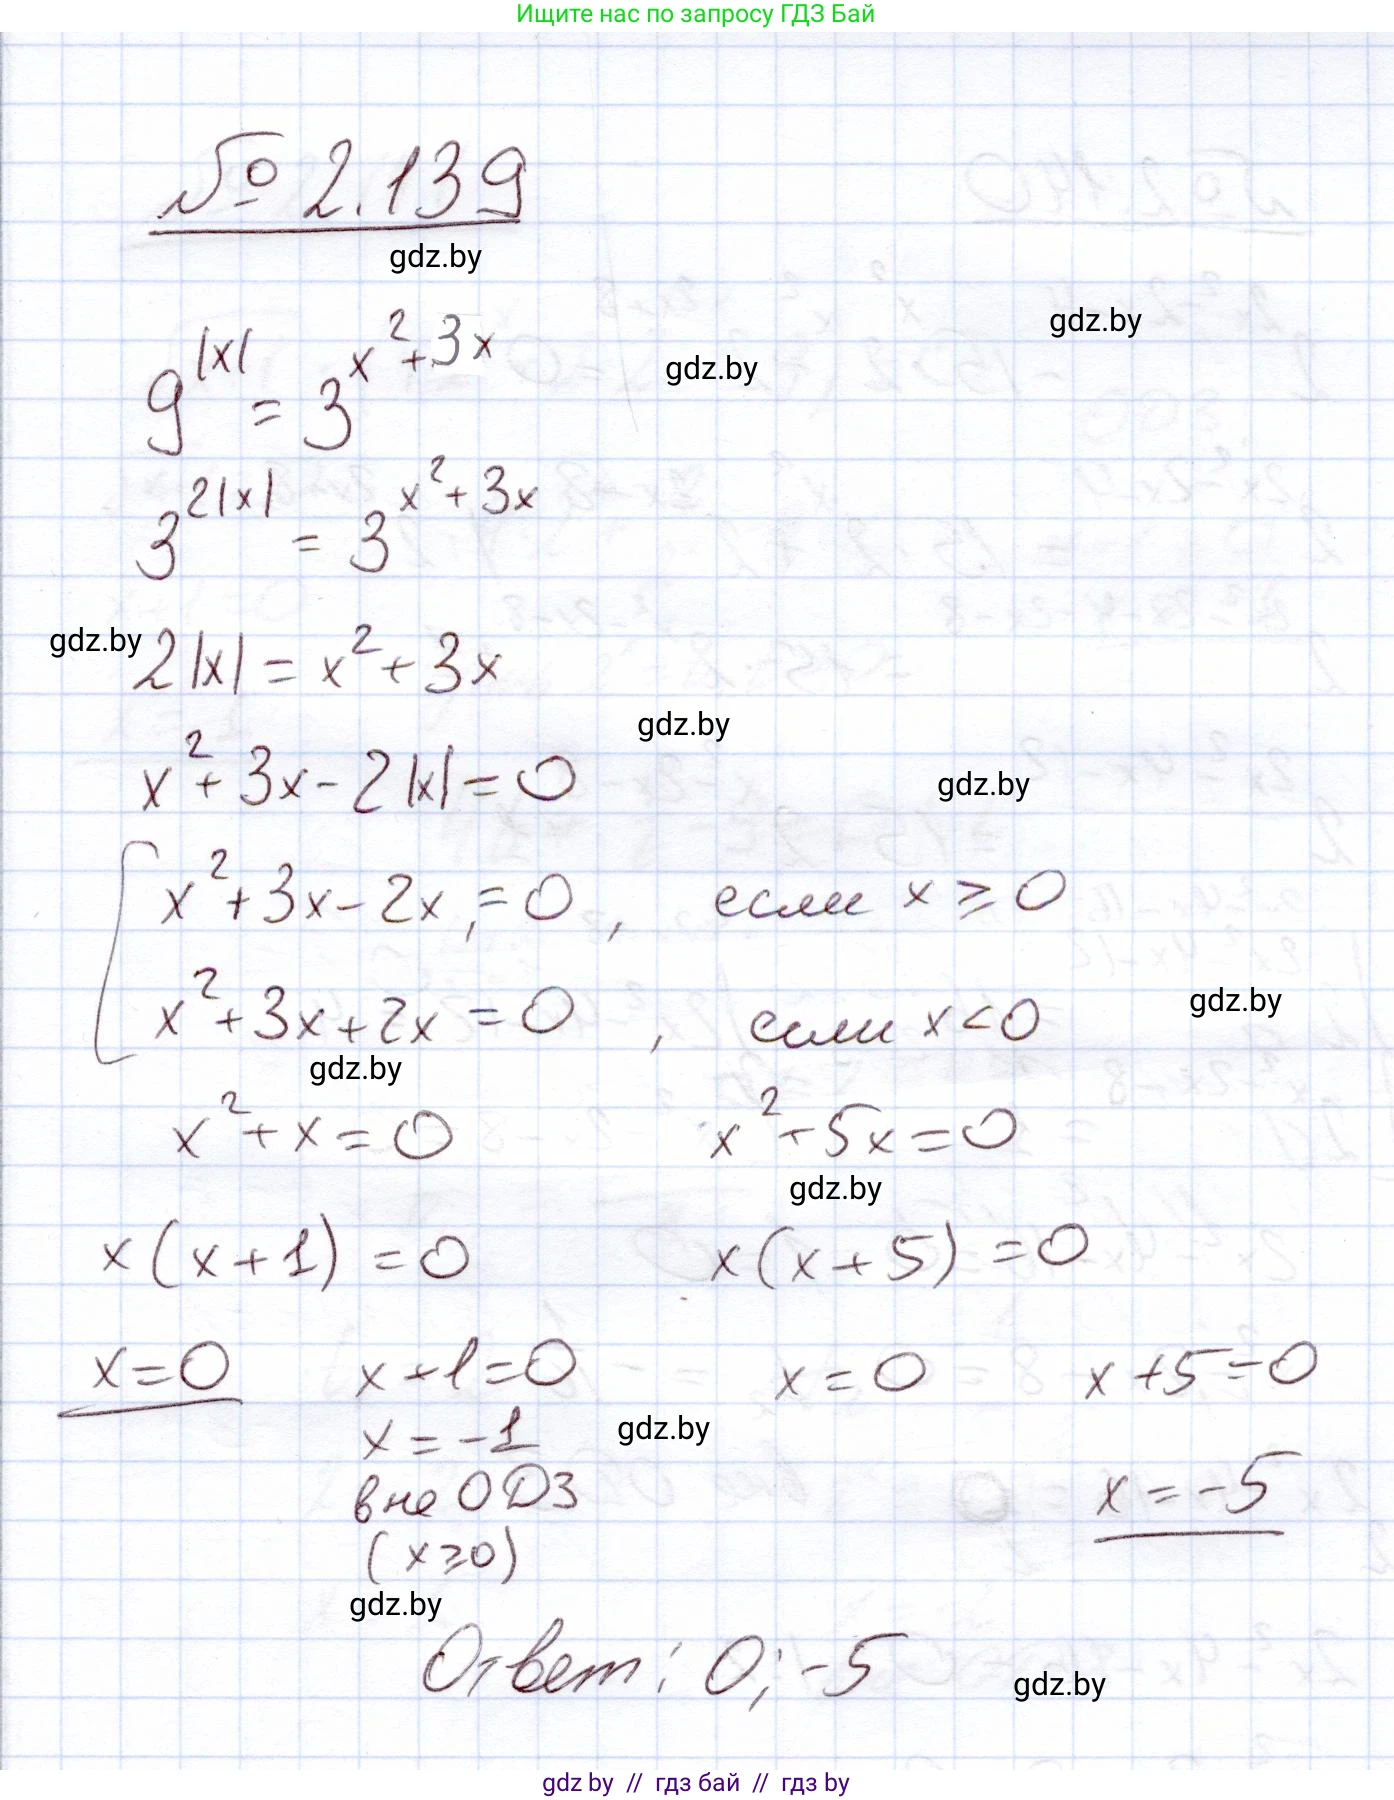 Ищите нас по запросу ГДЗ Бай
№ 2.139
gdz.by
gdz.by
9^|x| = 3^(x²+3x)
gdz.by
3^(2|x|) = 3^(x²+3x)
gdz.by
2|x| = x² + 3x
gdz.by
x² + 3x - 2|x| = 0
gdz.by
x² + 3x - 2x = 0, если x ≥ 0
x² + 3x + 2x = 0, если x < 0
gdz.by
gdz.by
x² + x = 0 x² + 5x = 0
gdz.by
x(x+1) = 0 x(x+5) = 0
x = 0 x+1=0 x = 0 x+5=0
x = -1
gdz.by
вне ОДЗ x = -5
(x ≥ 0)
gdz.by
Ответ: 0; -5
gdz.by
gdz by // гдз бай // гдз by